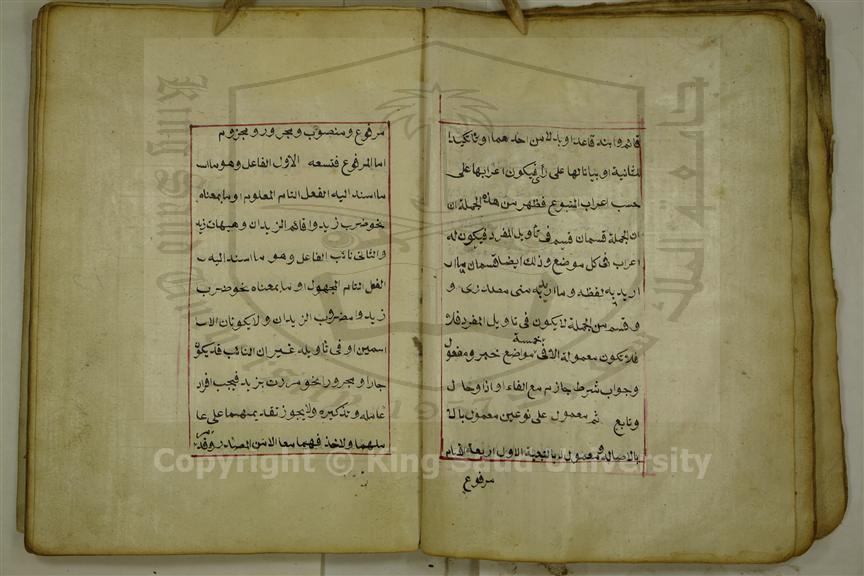 قائم وابنه قاعدا وبدلا من احدهما او تاكيدا
للثانية او بيانا لها على رأي فيكون اعرابها على
حسب اعراب المتبوع فظهر من هذه الجملة ان
ان الجملة قسمان قسم في تأويل المفرد فيكون له
اعراب في كل موضع وذلك ايضا قسمان ما
اريد به لفظه وما اريد به معنى مصدري و
وقسم من الجملة لا يكون في تاويل المفرد فلا
فلا تكون معمولة الا في خمسة مواضع خبر ومفعول
وجواب شرط جازم مع الفاء او اذا وحال
وتابع ثم معمول على نوعين معمول بالا
بالاصالة ومعمول بالتبعية الاول اربعة اقسام
مرفوع
مرفوع ومنصوب ومجرور ومجزوم
اما المرفوع فتسعة الاول الفاعل وهو ما
ما اسند اليه الفعل التام المعلوم او ما بمعناه
نحو ضرب زيد واقائم الزيدان وهيهات زيد
والثاني نائب الفاعل وهو ما اسند اليه
الفعل التام المجهول او ما بمعناه نحو ضرب
زيد وامضروب الزيدان ولا يكونان الا
اسمين او في تاويله غير ان النائب قد يكون
جارا ومجرورا نحو مررت بزيد فيجب افراد
عامله وتذكيره ولا يجوز تقديمهما على عا
ملهما ولا حذفهما معا الا من المصدر وقد مر
Copyright © King Saud University